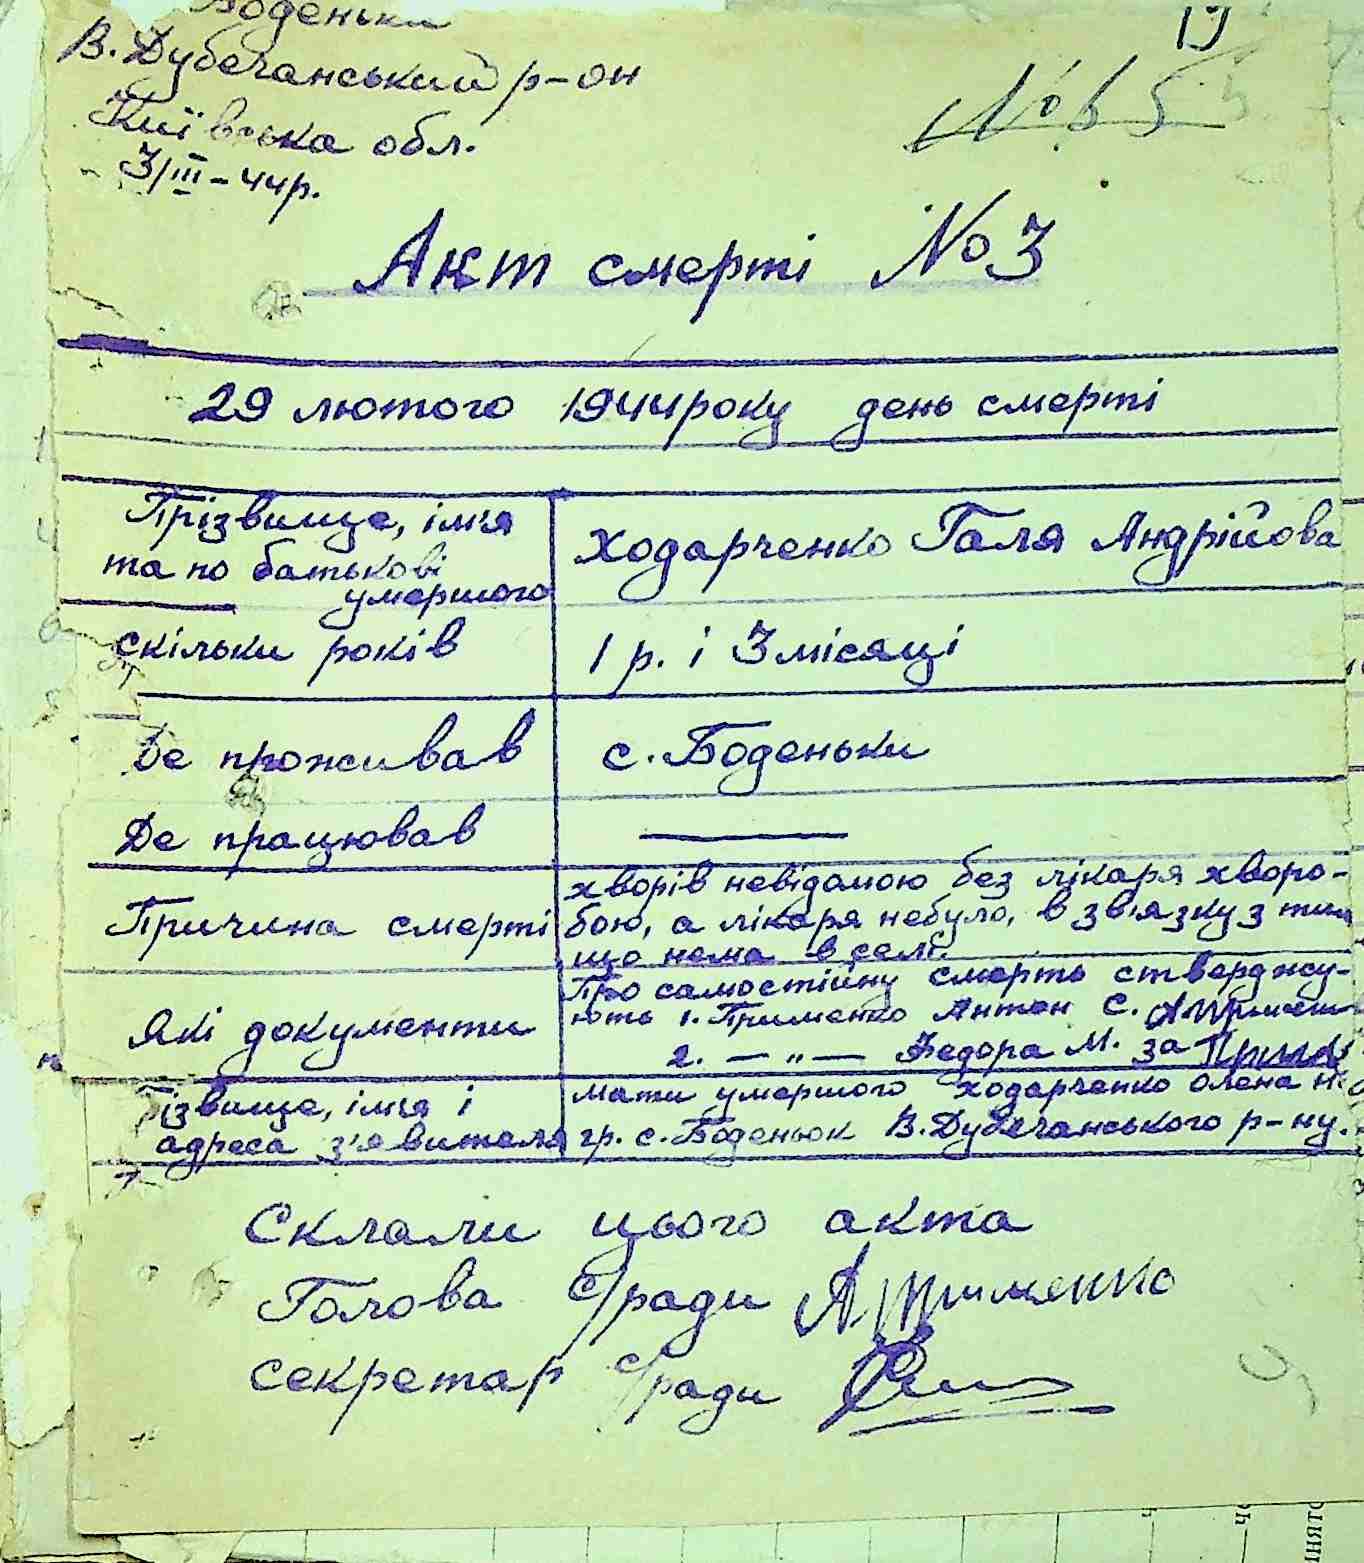 Боденьки
В. Дубечанський р-он
Київська обл.
3/III – 44 р.
19
№ 65
Акт смерті № 3
29 лютого 1944 року день смерті
Прізвище, імя
та по батькові
умершого
Ходарченко Галя Андрійова
скільки років
1 р. і 3 місяці
Де проживав
с. Боденьки
Де працював
Причина смерті
хворів невідомою без лікаря хворо-
бою, а лікаря небуло, в зв'язку з тим
що нема в селі.
Які документи
Про самостійну смерть стверджу-
ють 1. Применко Антон С.
2. — „ — Федора М. за
Прізвище, імя і
адреса з'явителя
мати умершого Ходарченко Олена
гр. с. Боденьок В. Дубечанського р-ну.
Склали цього акта
Голова с/ради А Применко
секретар с/ради